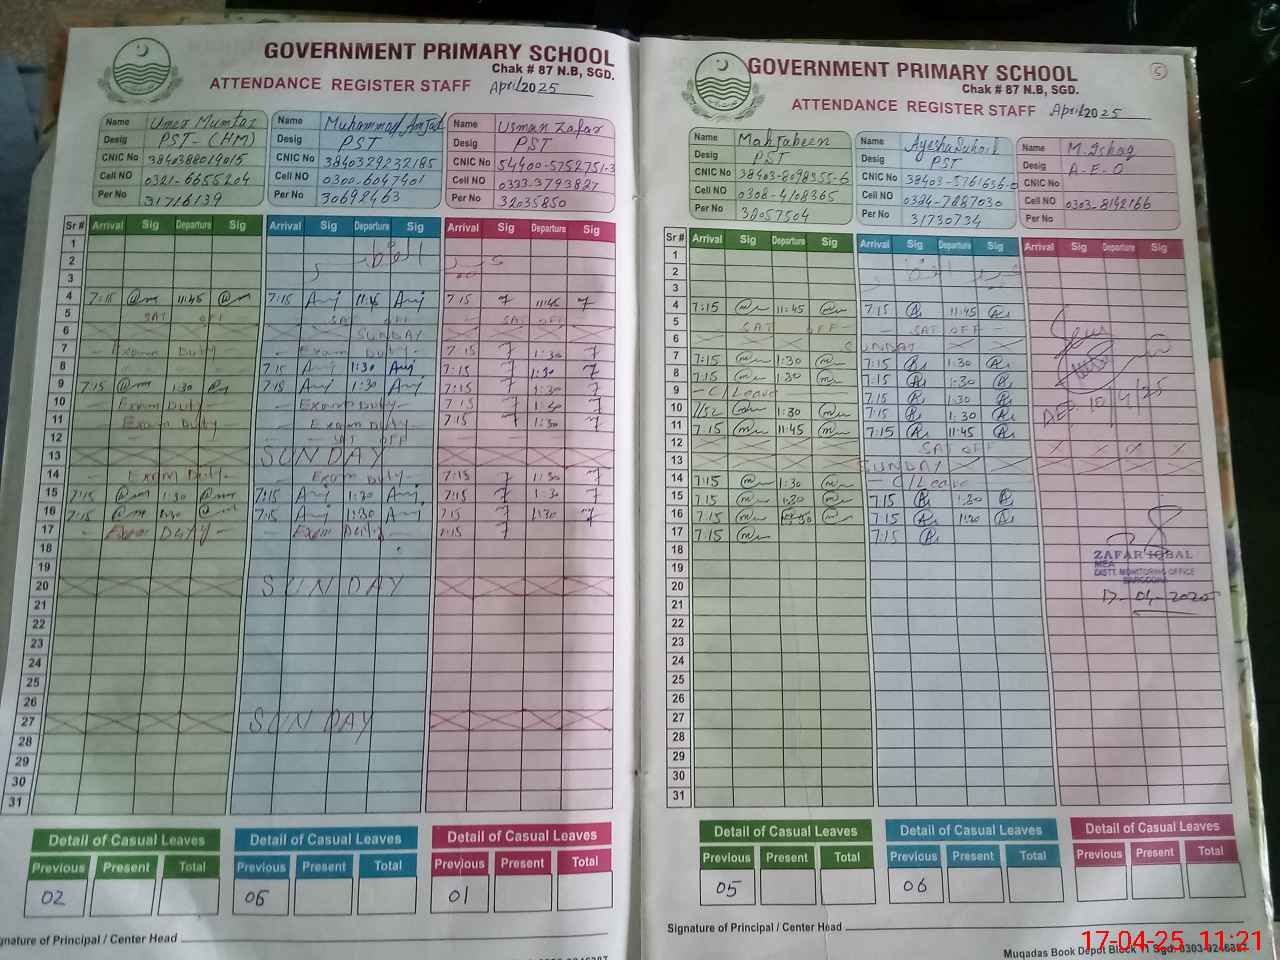 GOVERNMENT PRIMARY SCHOOL
Chak # 87 N.B, SGD.
ATTENDANCE REGISTER STAFF April 2025
Name Umer Mumtaz
Desig PST-(HM)
CNIC No 3840388019015
Cell NO 0321-6655204
Per No 31716139
Name Muhammad Amjad
PST
3840329232185
0300-6047401
30692463
Name Usman Zafar
Desig PST
CNIC No 54400-5752751-3
Cell NO 0333-3793827
Per No 32035850
Sr# Arrival Sig Departure Sig Arrival Sig Departure Sig Arrival Sig Departure Sig
1
2
3
4 7:15 11:45 7:15 Amj 11:45 Amj 7:15 11:45
5 SAT OFF SAT OFF SAT OFF
6 SUNDAY
7 - Exam Duty - Exam Duty - 7:15 1:30
8 7:15 Amj 1:30 Amj 7:15 1:30
9 7:15 1:30 7:15 Amj 1:30 Amj 7:15 1:30
10 - Exam Duty - - Exam Duty - 7:15
11 - Exam Duty - - Exam Duty - 7:15 1:30
12 - SAT OFF
13 SUNDAY
14 - Exam Duty - - Exam Duty - 7:15 1:30
15 7:15 1:30 7:15 Amj 1:30 Amj 7:15 1:30
16 7:15 1:30 7:15 Amj 1:30 Amj 7:15 1:30
17 - Exam Duty - - Exam Duty - 7:15
18
19
20 SUNDAY
21
22
23
24
25
26
27 SUNDAY
28
29
30
31
Detail of Casual Leaves Detail of Casual Leaves Detail of Casual Leaves
Previous Present Total Previous Present Total Previous Present Total
02 05 01
Signature of Principal / Center Head
GOVERNMENT PRIMARY SCHOOL
5
Chak # 87 N.B, SGD.
ATTENDANCE REGISTER STAFF April 2025
Name Mahjabeen
Desig PST
CNIC No 38403-8098355-6
Cell NO 0308-4108365
Per No 32057504
Name Ayesha
Desig PST
CNIC No 38403-5761636-0
Cell NO 0324-7887030
Per No 31730734
Name M. Ishaq
Desig A.E.O
CNIC No
Cell NO 0303-8142166
Per No
Sr# Arrival Sig Departure Sig Arrival Sig Departure Sig Arrival Sig Departure Sig
1
2
3
4 7:15 11:45 7:15 11:45
5 SAT OFF - - SAT OFF -
6 SUNDAY
7 7:15 1:30 7:15 1:30
8 7:15 1:30 7:15 1:30
9 - C/Leave - 7:15 1:30
10 1:30 7:15 1:30
11 7:15 11:45 7:15 11:45
12 SAT OFF
13 SUNDAY
14 7:15 1:30 - C/Leave
15 7:15 1:30 7:15 1:30
16 7:15 7:15 1:30
17 7:15 7:15
18
19
20
21
22
23
24
25
26
27
28
29
30
31
AEO 10/4/25
ZAFAR IQBAL
MEA
DISTT. MONITORING OFFICE
SARGODHA
17-04-2025
Detail of Casual Leaves Detail of Casual Leaves Detail of Casual Leaves
Previous Present Total Previous Present Total Previous Present Total
05 06
Signature of Principal / Center Head
Muqadas Book Depot Block 11 Sgd. 0303-9246387
17-04-25 11:21